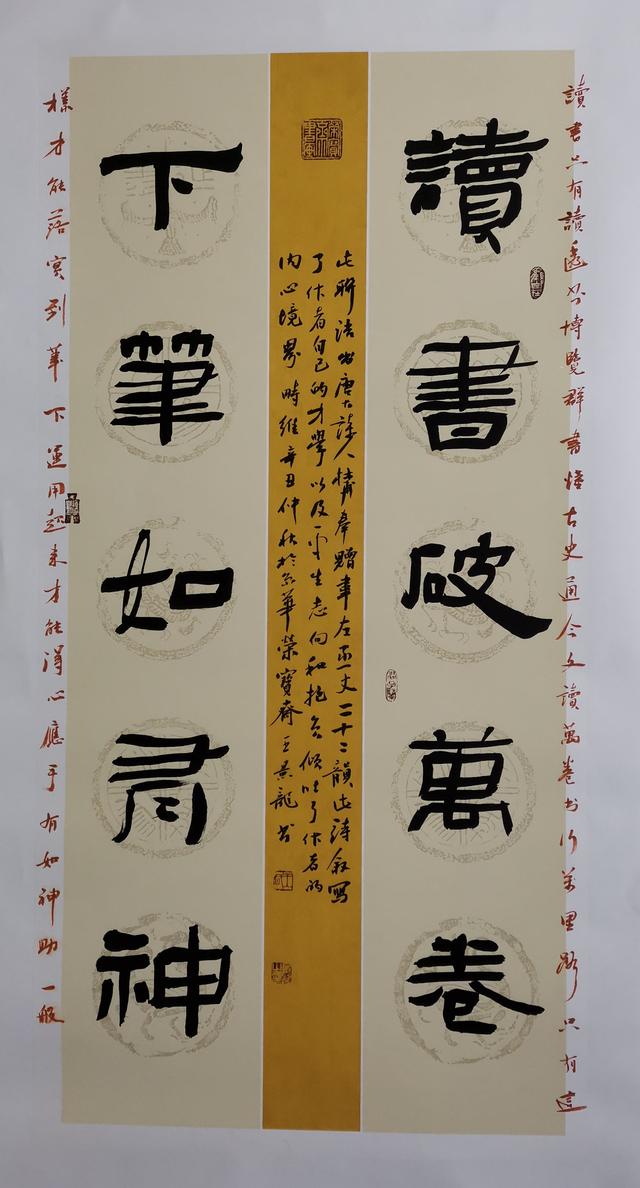 讀書只有讀透博覽群書懂古史通今文讀萬卷书行萬里路只有這
讀書破萬卷
此聯語出唐大詩人杜甫奉贈韋左丞丈二十二韻此詩叙寫
了作者自己的才學以及平生志向和抱負傾吐了作者的
内心境界時維辛丑仲秋於京華榮寶齋王景龍书
下筆如有神
樣才能落實到筆下運用起来才能得心應手有如神助一般